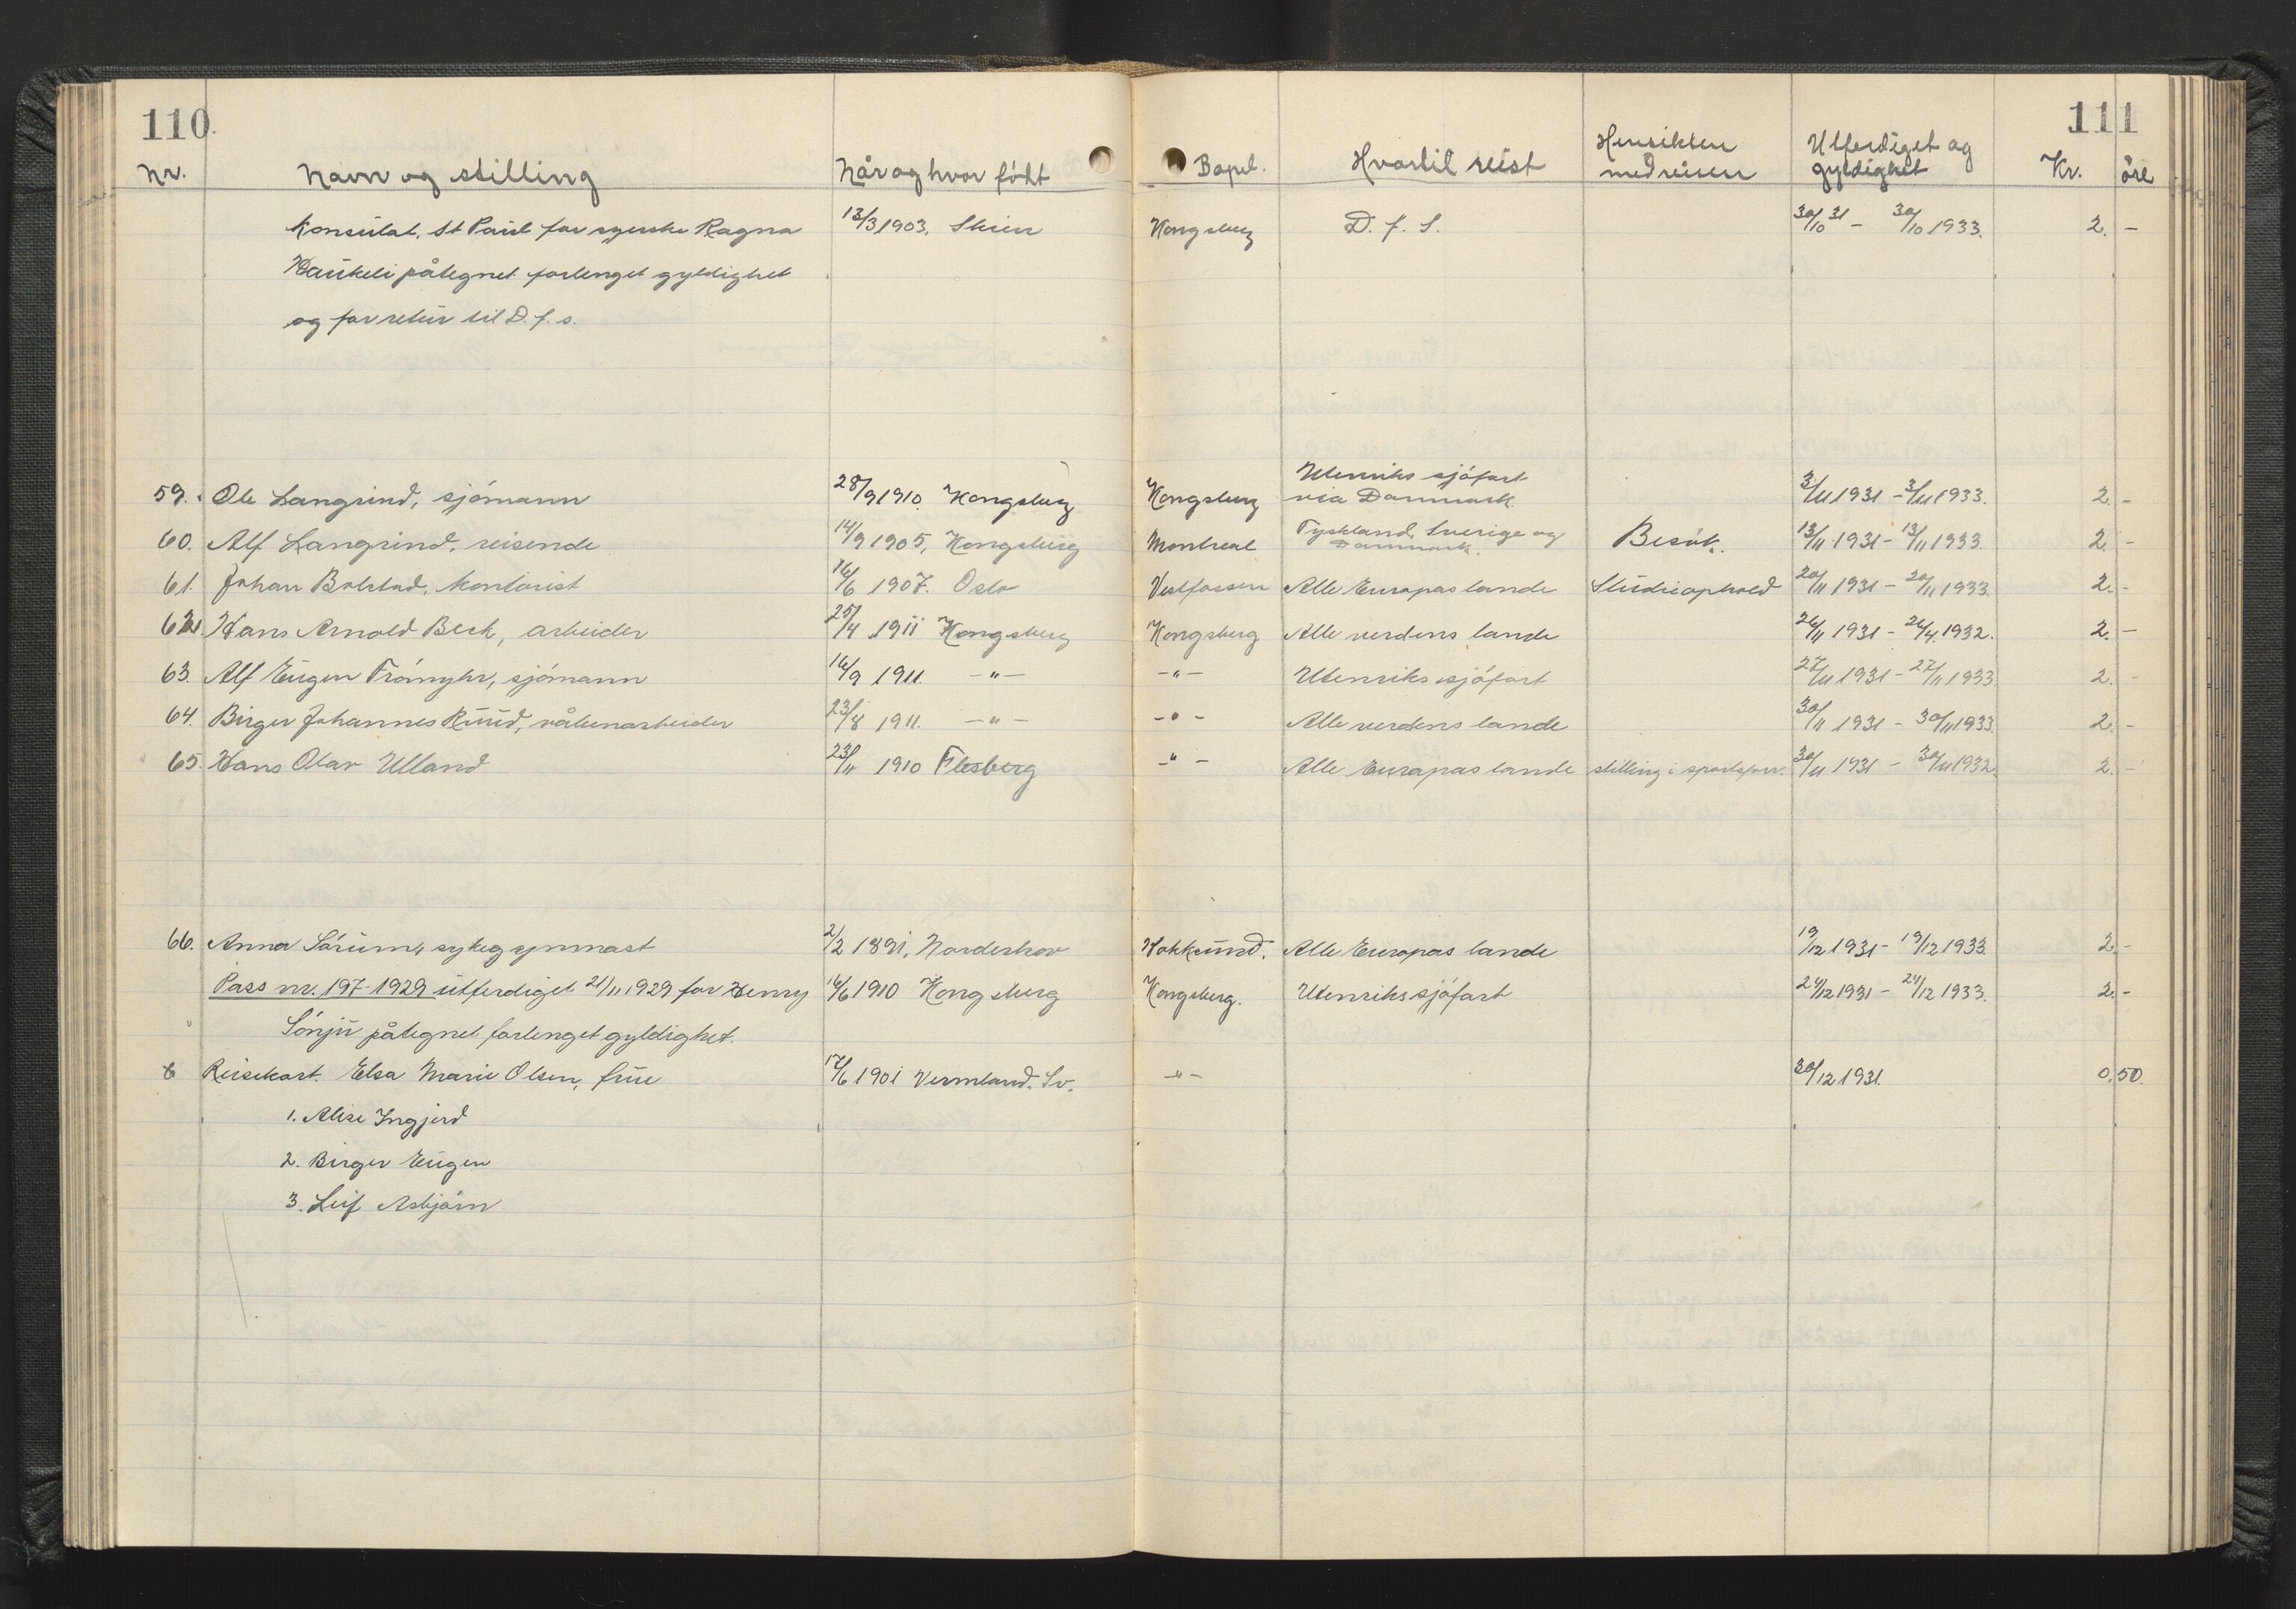 110.
111
Nr. Navn og stilling Når og hvor født Bopel. Hvortil reist Hensikten med reisen Utferdiget og gyldighet Kr. öre
konsulat. St Paul for syerske Ragna 13/3 1903. Skien Kongsberg D. f. S. 30/10 31 - 30/10 1933. 2. -
Haukeli påtegnet forlenget gyldighet
og for retur til D. f. s.
59. Ole Langrind, sjømann 28/9 1910. Kongsberg Kongsberg Utenriks sjöfart via Danmark. 3/11 1931 - 3/11 1933. 2. -
60. Alf Langrind, reisende 14/9 1905, Kongsberg Montreal Tyskland, Sverige og Danmark. Besök. 13/11 1931 - 13/11 1933. 2. -
61. Johan Bolstad, kontorist 16/6 1907. Oslo Vestfossen Alle Europas lande Studieophold 20/11 1931 - 20/11 1933. 2. -
62. Hans Arnold Beck, arbeider 25/4 1911 Kongsberg Kongsberg Alle verdens lande 26/11 1931 - 26/4 1932. 2. -
63. Alf Eugen Frömyhr, sjömann 16/9 1911. -"- -"- Utenriks sjöfart 27/11 1931 - 27/11 1933 2. -
64. Birger Johannes Ruud, våbenarbeider 23/8 1911. -"- -"- Alle verdens lande 30/11 1931 - 30/11 1933. 2. -
65. Hans Olav Ulland 23/11 1910 Flesberg -"- Alle Europas lande stilling i sportsforr. 30/11 1931 - 30/11 1932. 2. -
66. Anna Sörum, sykegymnast 2/2 1891, Norderhov Hokksund. Alle Europas lande 19/12 1931 - 19/12 1933. 2. -
Pass nr. 197-1929 utferdiget 21/11 1929 for Henry 16/6 1910 Kongsberg Kongsberg. Utenriks sjöfart 24/12 1931 - 24/12 1933. 2. -
Sönju påtegnet forlenget gyldighet.
Reisekort. Elsa Marie Olsen, frue 17/6 1901 Vermland. Sv. -"- 30/12 1931. 0. 50.
1. Alise Ingjerd
2. Birger Eugen
3. Leif Asbjörn